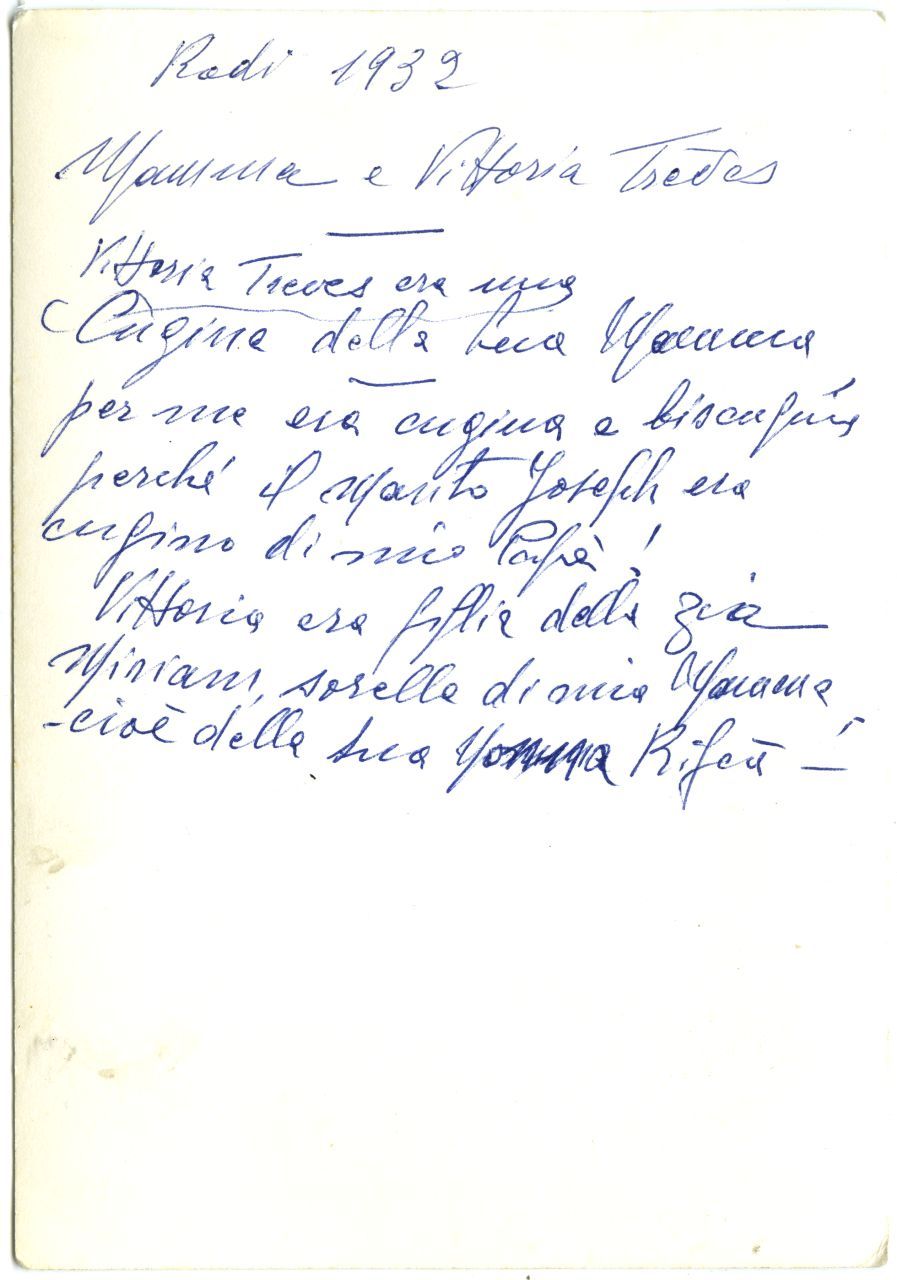 Rodi 1932
Mamma e Vittoria Treves
Vittoria Treves era una
(Cugina della tua Mamma
per me era cugina e biscugina
perché il marito Joseph era
cugino di mio Papà!
Vittoria era figlia della zia
Miriam, sorella di mia Mamma
-cioè della tua Nonna Rifcà -!